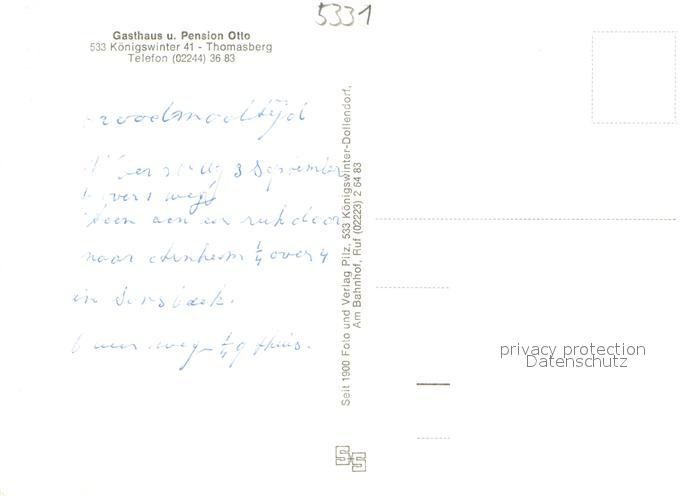 5331
Gasthaus u. Pension Otto
533 Königswinter 41 - Thomasberg
Telefon (02244) 36 83
3 September
over weg
aan een ruk door
naar Arnheim ¼ over 4
in
weg ¼ 9 thuis.
Seit 1900 Foto und Verlag Pilz, 533 Königswinter-Dollendorf,
Am Bahnhof, Ruf (02223) 2 64 83
privacy protection
Datenschutz